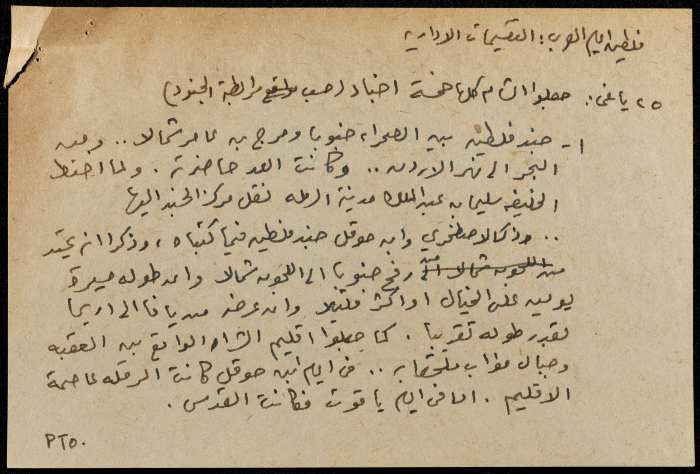 فلسطين ايام العرب: التقسيمات الادارية
٢٥ ياغي: جعلوا الشام كلها خمسة اجناد (حسب مواقع مرابطة الجنود)
١- جند فلسطين بين الصحراء جنوبا ومرج بن عامر شمالا .. ومن
البحر الى نهر الاردن .. وكانت اللد حاضرته . ولما اختط
الخليفة سليمان بن عبد الملك مدينة الرمله نقل مركز الجند اليها
.. وذكر الاصطخري وابن حوقل جند فلسطين فيما كتباه ، وذكرا انه يمتد
من رفح جنوبا الى اللجون شمالا وان طوله مسيرة
يومين على الخيال او اكثر قليلا وان عرضه من يافا الى اريحا
بقدر طوله تقريبا . كما جعلوا اقليم الشراه الواقع بين العقبه
وجبال مؤاب ملحقا به .. في ايام ابن حوقل كانت الرمله عاصمة
الاقليم . اما في ايام ياقوت فكانت القدس .
P٢٥٠